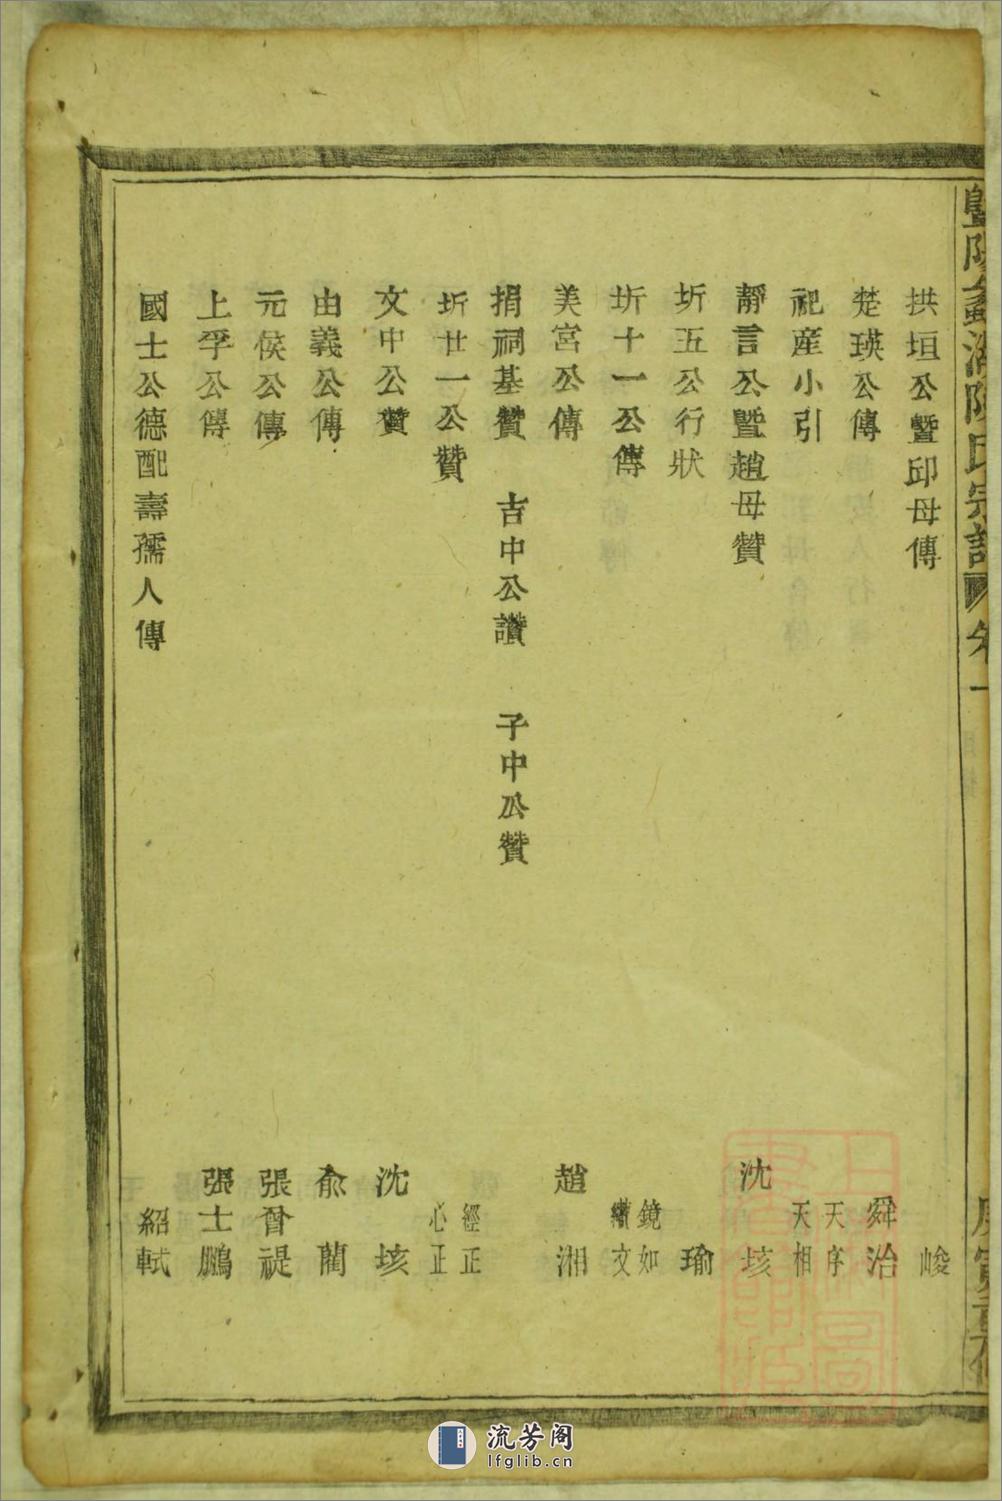 暨陽𨭉湖陳氏宗譜 卷一 庚寅重修
拱垣公暨邱母傳 峻
楚瑛公傳 舜治
祀産小引 天序 天相
靜言公暨趙母贊 沈垓
圻五公行狀 瑜
圻十一公傳 鏡如 繡文
美宮公傳 趙湘
捐祠基贊 吉中公讚 子中公贊
圻廿一公贊 經正 心正
文中公贊 沈垓
由義公傳 俞藺
元侯公傳 張晉禔
上孚公傳 張士鵬
國士公德配壽孺人傳 紹軾
流芳阁
lfglib.cn